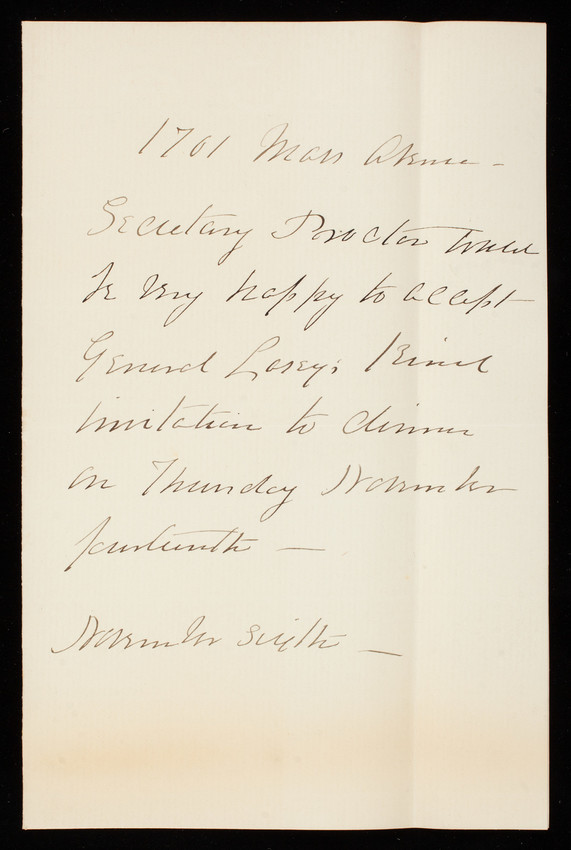 1701 Mass Avenue -
Secretary Proctor would
be very happy to accept
General Casey's kind
invitation to dinner
on Thursday November
fourteenth —
November sixth —